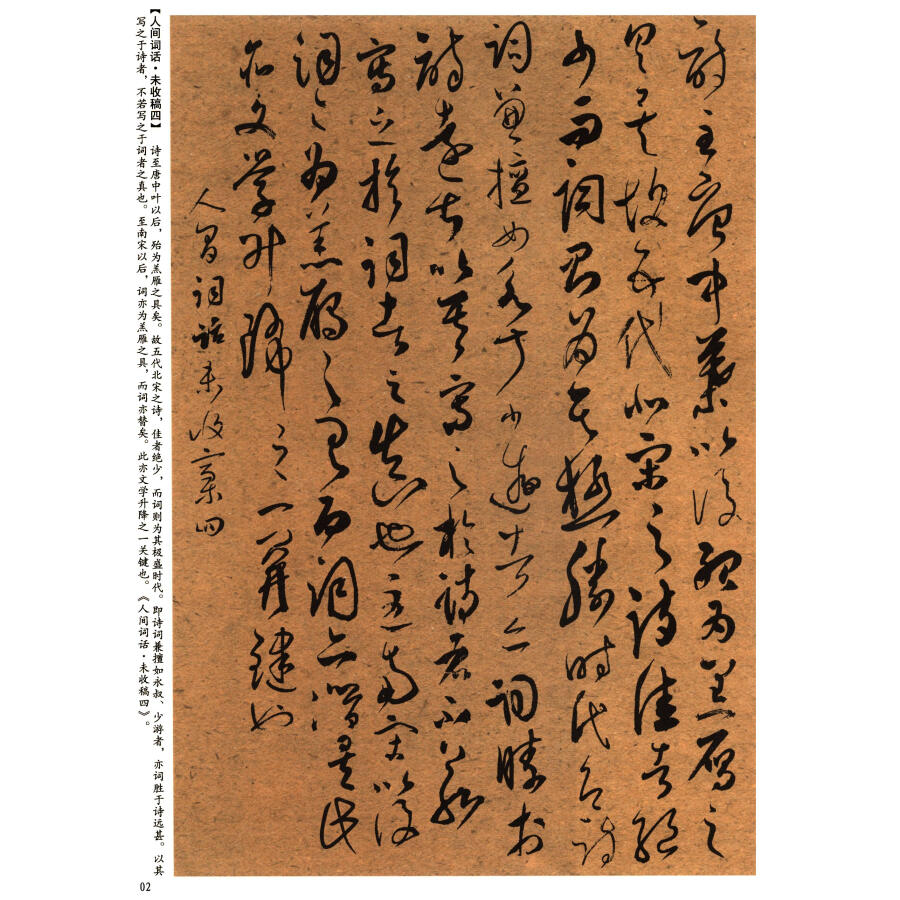 詩至唐中葉以後殆为羔雁之
具矣故五代北宋之詩佳者絕
少而詞則為其極勝時代即詩
詞兼擅如永叔少游者亦詞勝於
詩遠甚以其寫之於詩者不若
寫之於詞者之真也至南宋以後
詞亦為羔雁之具而詞亦替矣此
亦文學升降之一關鍵也
人間詞話未收稾四
【人间词话·未收稿四】 诗至唐中叶以后，殆为羔雁之具矣。故五代北宋之诗，佳者绝少，而词则为其极盛时代。即诗词兼擅如永叔、少游者，亦词胜于诗远甚。以其
写之于诗者，不若写之于词者之真也。至南宋以后，词亦为羔雁之具，而词亦替矣。此亦文学升降之一关键也。《人间词话·未收稿四》。
02